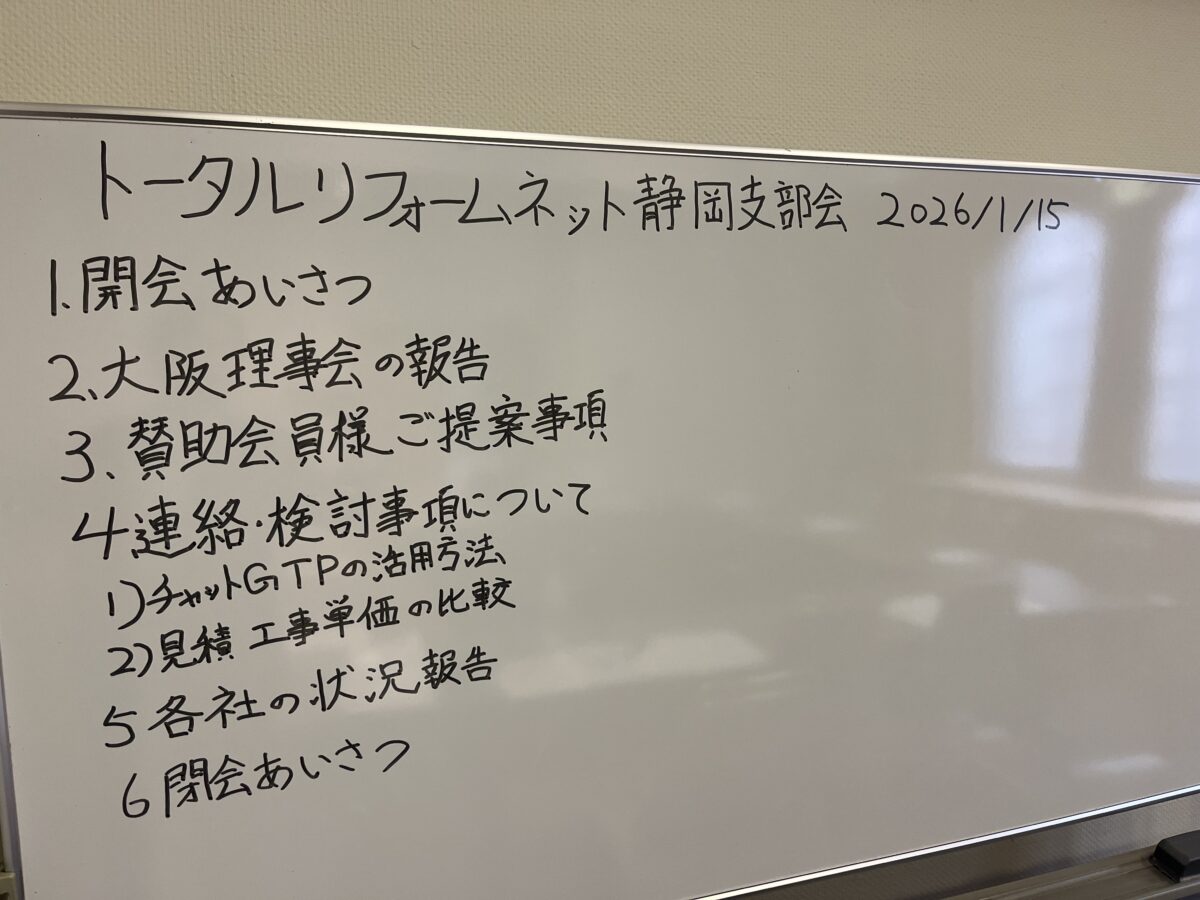 トータルリフォームネット静岡支部会 2026/1/15
1.開会あいさつ
2、大阪理事会の報告
3、賛助会員様ご提案事項
4連絡・検討事項について
1)チャットGTPの活用方法
2)見積 工事単価の比較
5各社の状況報告
6閉会あいさつ